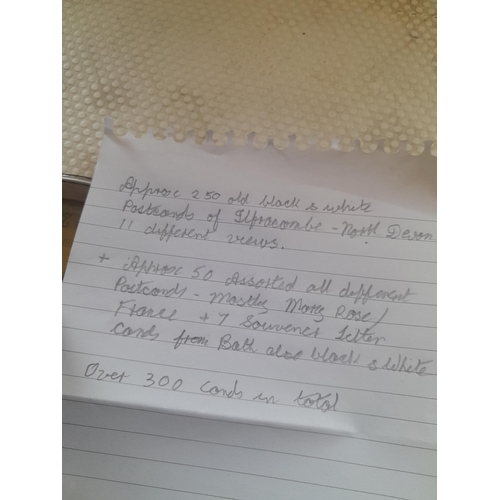 Approx 250 old black & white
Postcards of Ilfracombe - North Devon
11 different views.
+ Approx 50 Assorted all different
Postcards - Mostly Mary Rose/
France + 7 Souvenir Letter
Cards from Bath also black & white
Over 300 Cards in total